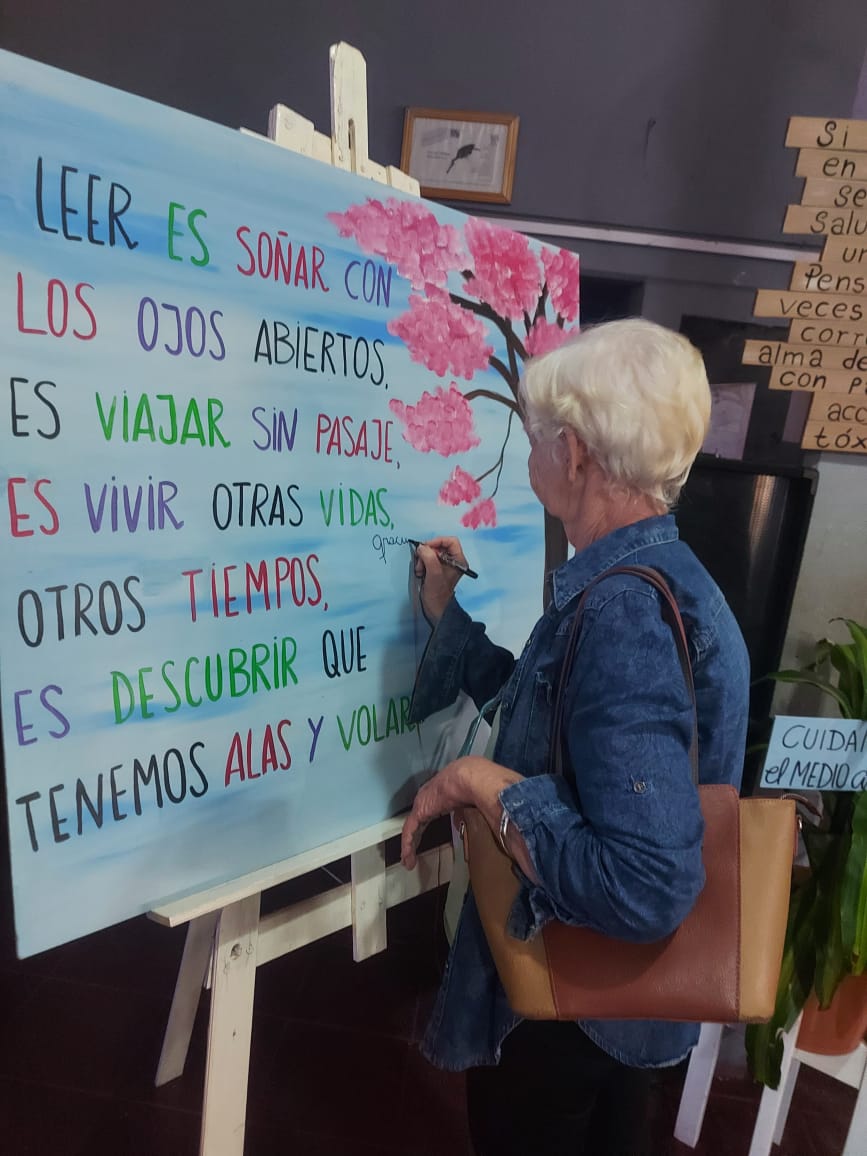 LEER ES SOÑAR CON
LOS OJOS ABIERTOS,
ES VIAJAR SIN PASAJE,
ES VIVIR OTRAS VIDAS,
OTROS TIEMPOS,
ES DESCUBRIR QUE
TENEMOS ALAS Y VOLAR
Si
en
se
Salu
un
Pens
veces
corri
alma de
con p
acc
tóx
CUIDA
el MEDIO a